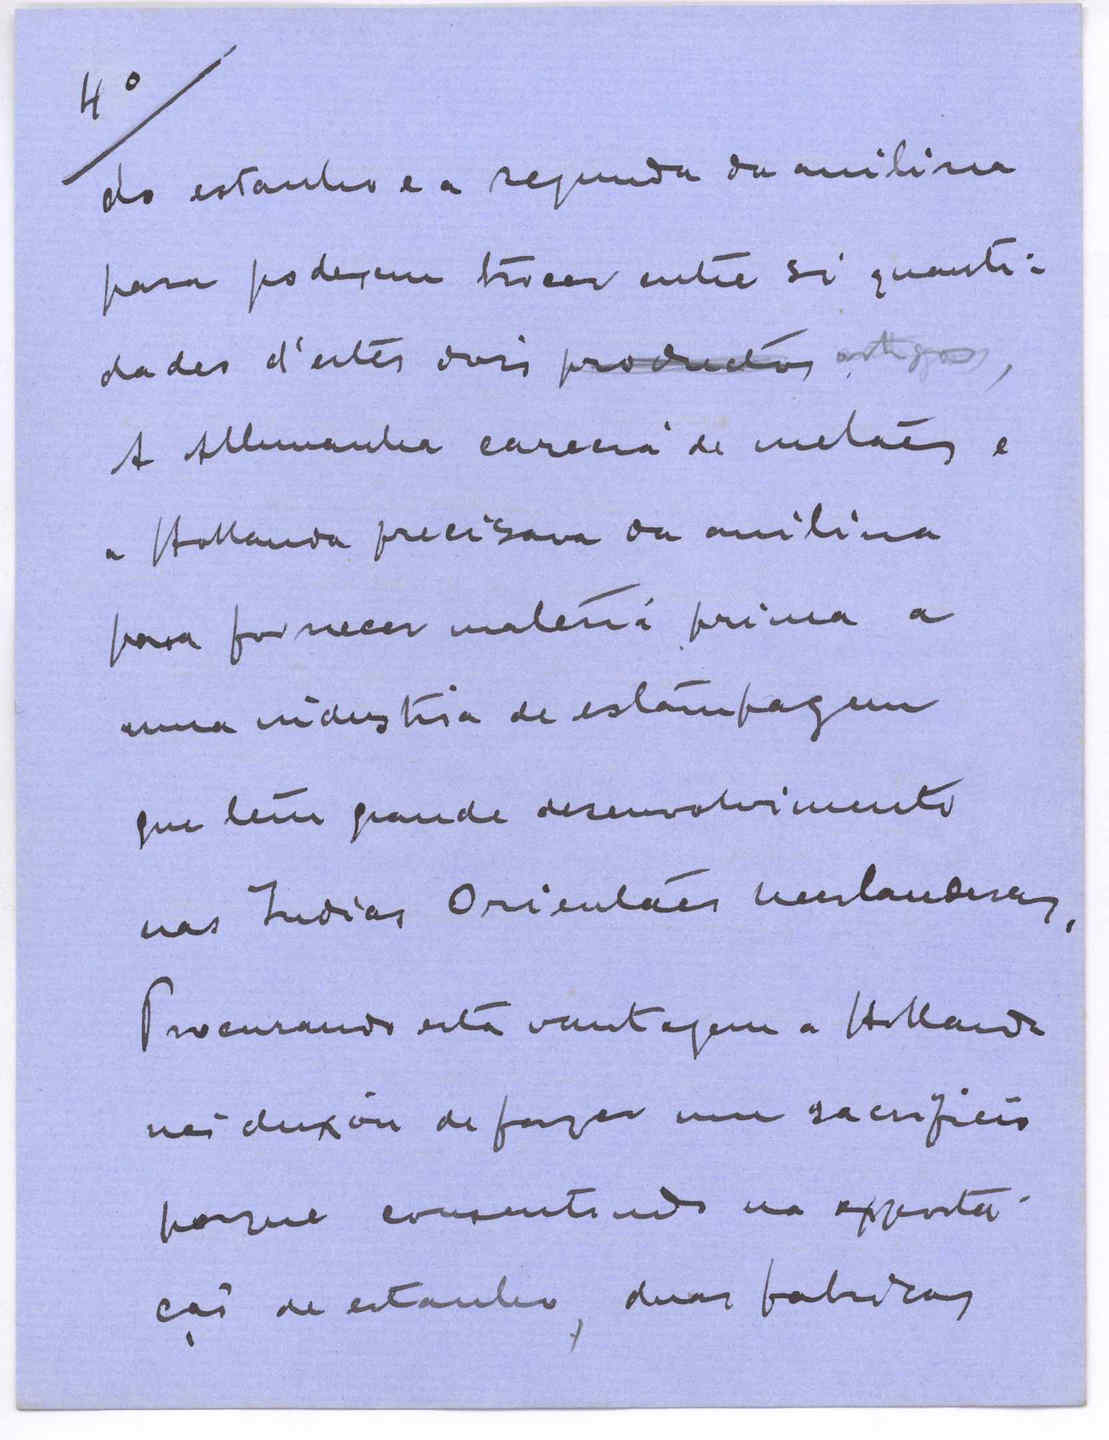 4º
do estanho e a segunda da anilina
para poderem trocar entre si quanti-
dades d'estes dois productos artigos,
A Allemanha carecia de metaes e
a Hollanda precisava da anilina
para fornecer materia prima a
uma industria de estampagem
que tem grande desenvolvimento
nas Indias Orientaes neerlandesas,
Procurando esta vantagem a Hollanda
nei deixou de fazer um sacrificio
porque consentindo na exporta-
ção de estanho, duas fabricas